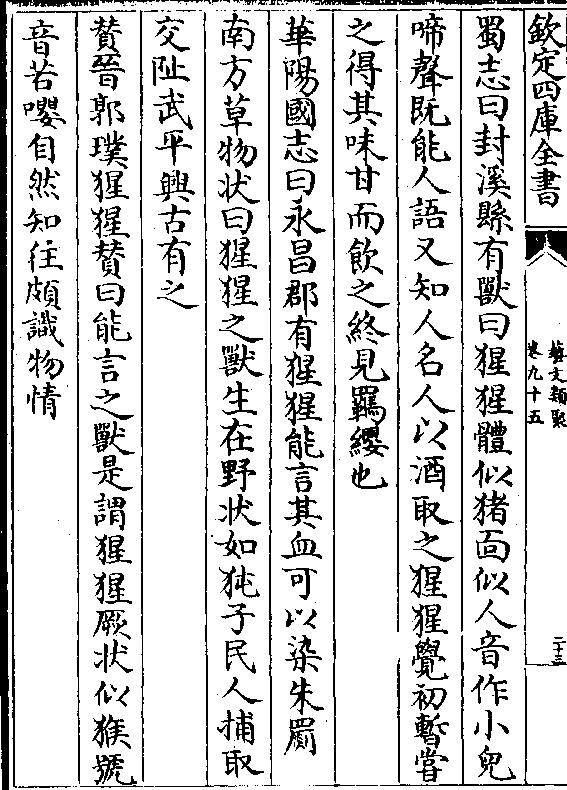 欽定四庫全書
藝文類聚
卷九十五
二十三
蜀志曰封溪縣有獸曰猩猩體似猪面似人音作小兒
啼聲既能人語又知人名人以酒取之猩猩覺初暫嘗
之得其味甘而飲之終見羈纓也
華陽國志曰永昌郡有猩猩能言其血可以染朱罽
南方草物状曰猩猩之獸生在野状如㹠子民人捕取
交阯武平興古有之
賛晉郭璞猩猩賛曰能言之獸是謂猩猩厥状似猴號
音若嚶自然知往頗識物情